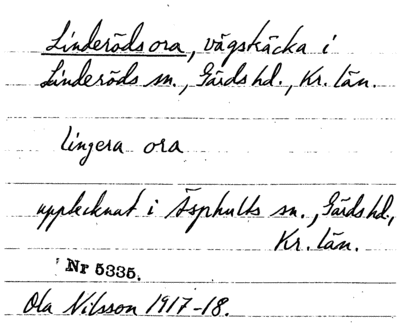 Linderöds ora, vägsträcka i
Linderöds sn., Gärds hd., Kr. län.
lingera ora
upptecknat i Äsphults sn., Gärds hd.,
Kr. län.
Nr 5335.
Ola Nilsson 1917-18.